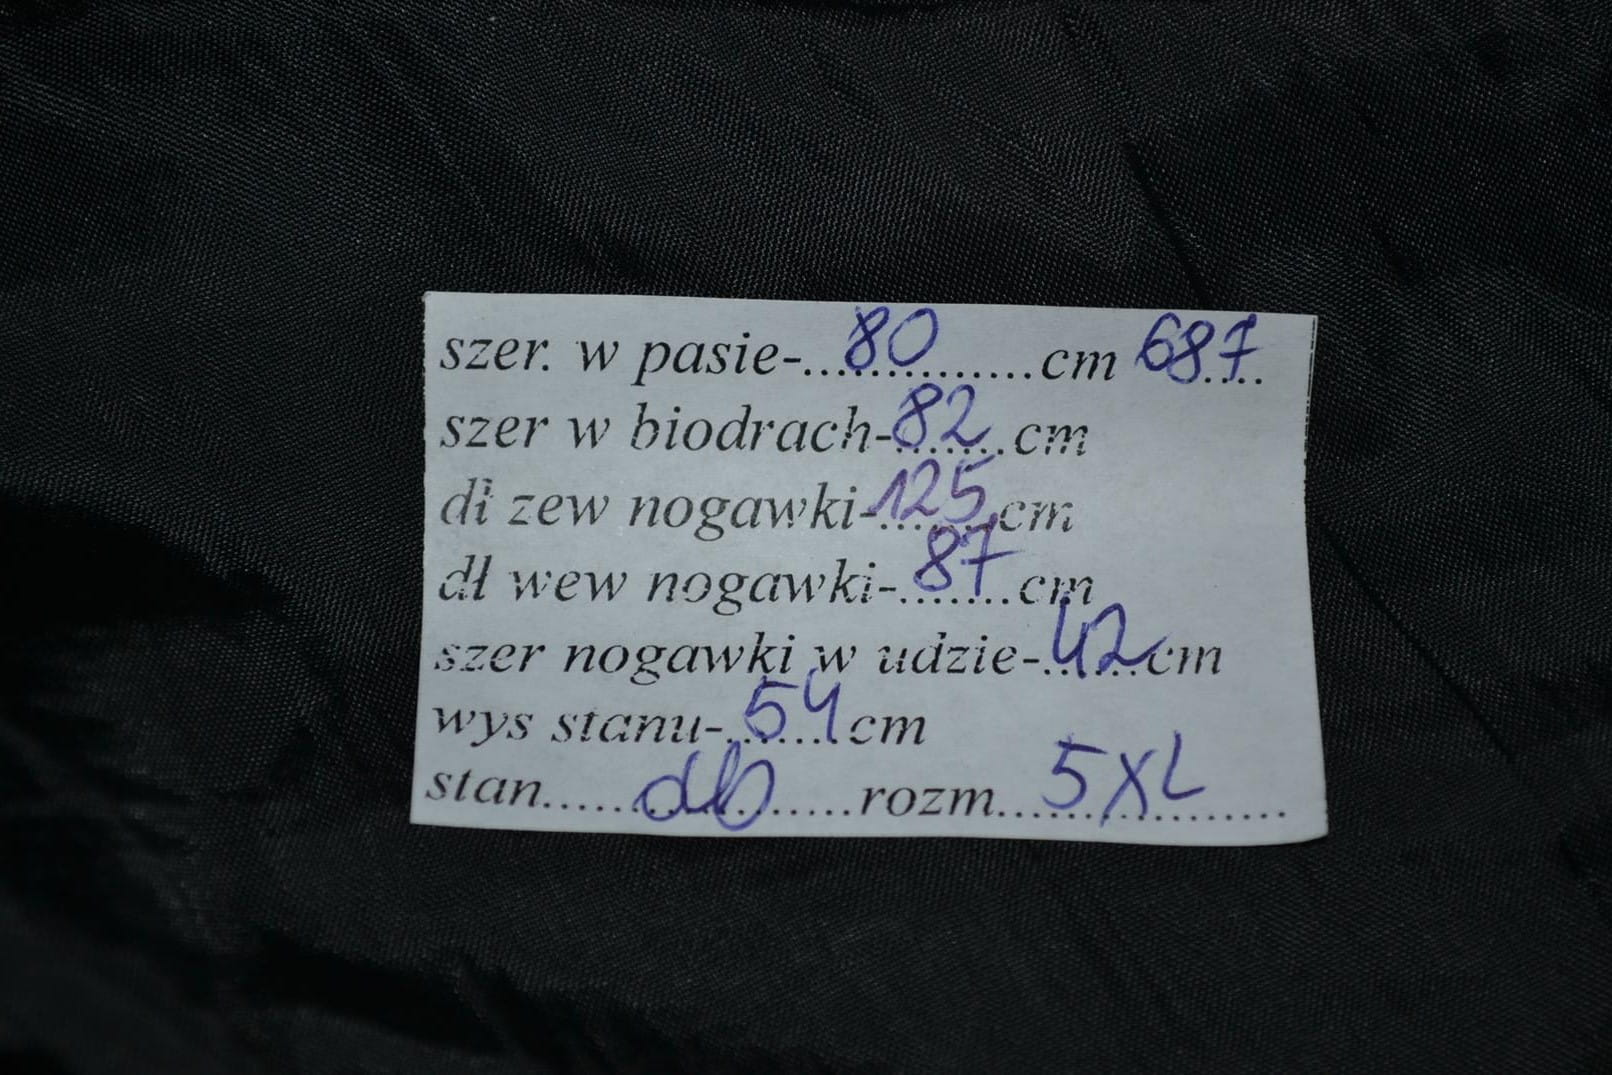 szer. w pasie-...80...cm 687
szer w biodrach-82...cm
dł zew nogawki-125cm
dł wew nogawki-87...cm
szer nogawki w udzie-42cm
wys stanu-54cm
stan......db......rozm...5XL......